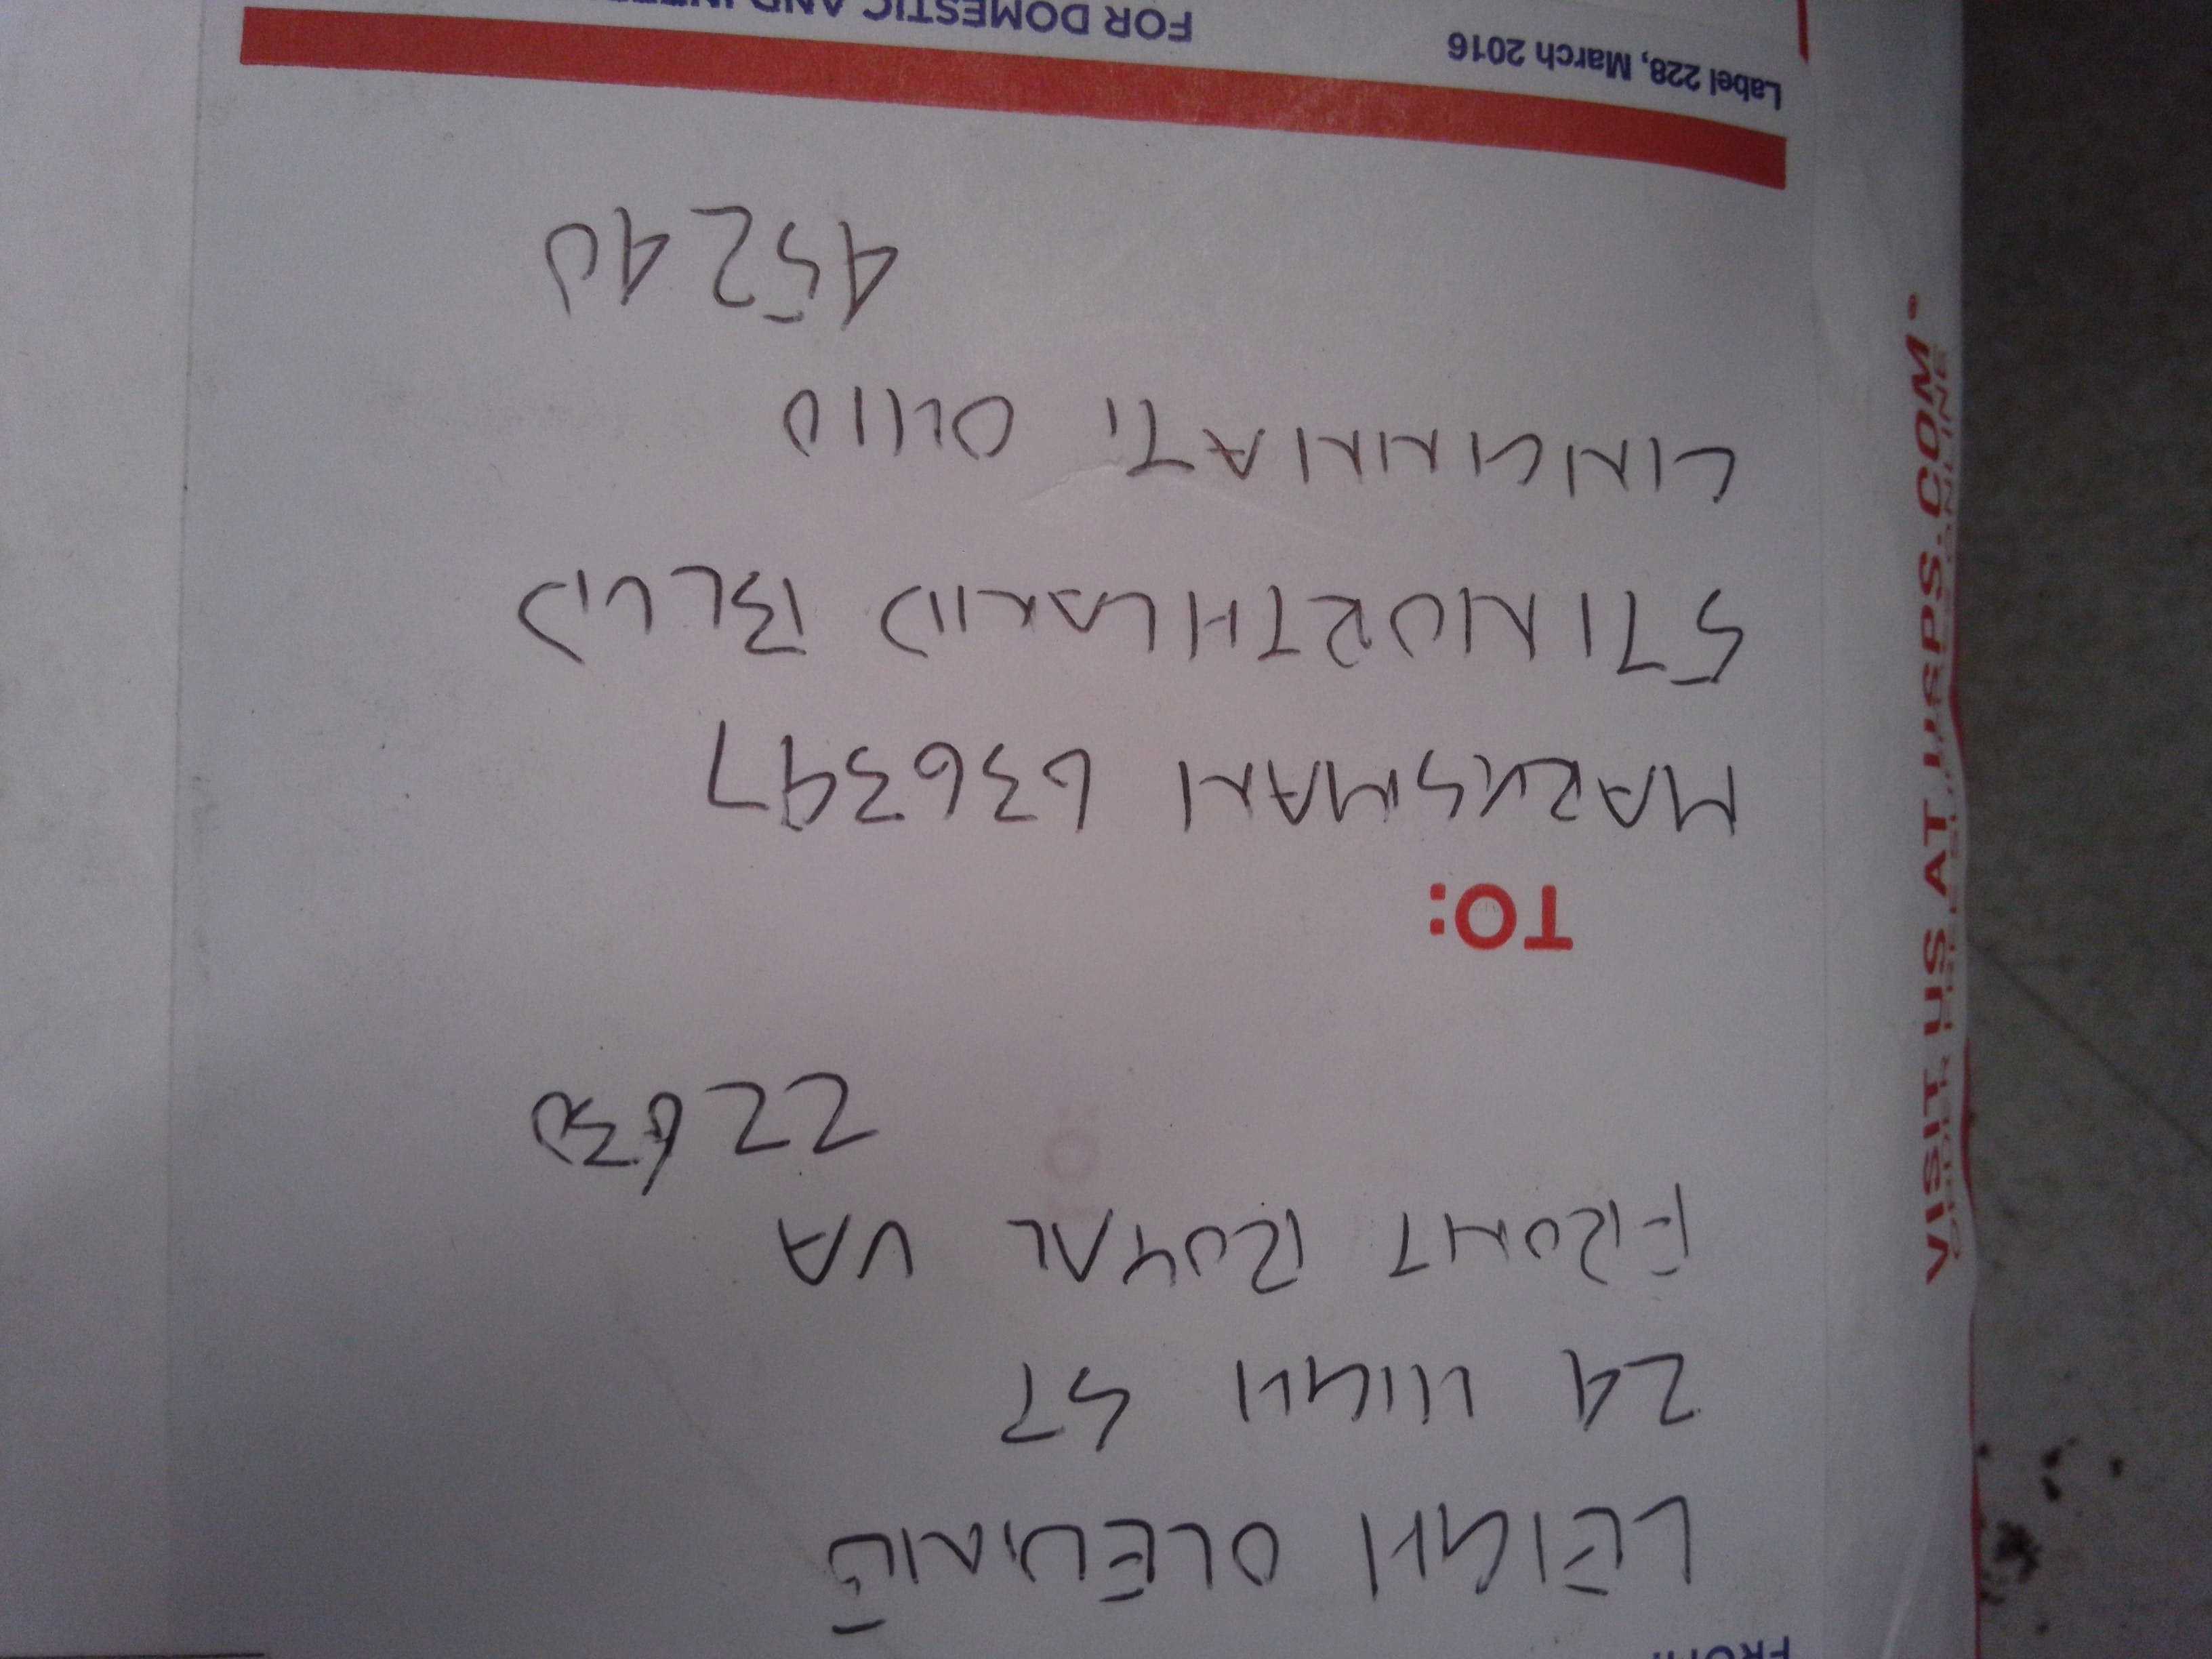 FROM:
LEIGH OLEVINE
24 HIGH ST
FRONT ROYAL VA
22630
TO:
MARKSMAN 636397
STINORTHLAND BLVD
CINCINNATI OHIO
45240
Label 228, March 2016
FOR DOMESTIC AND
VISIT US AT USPS.COM®